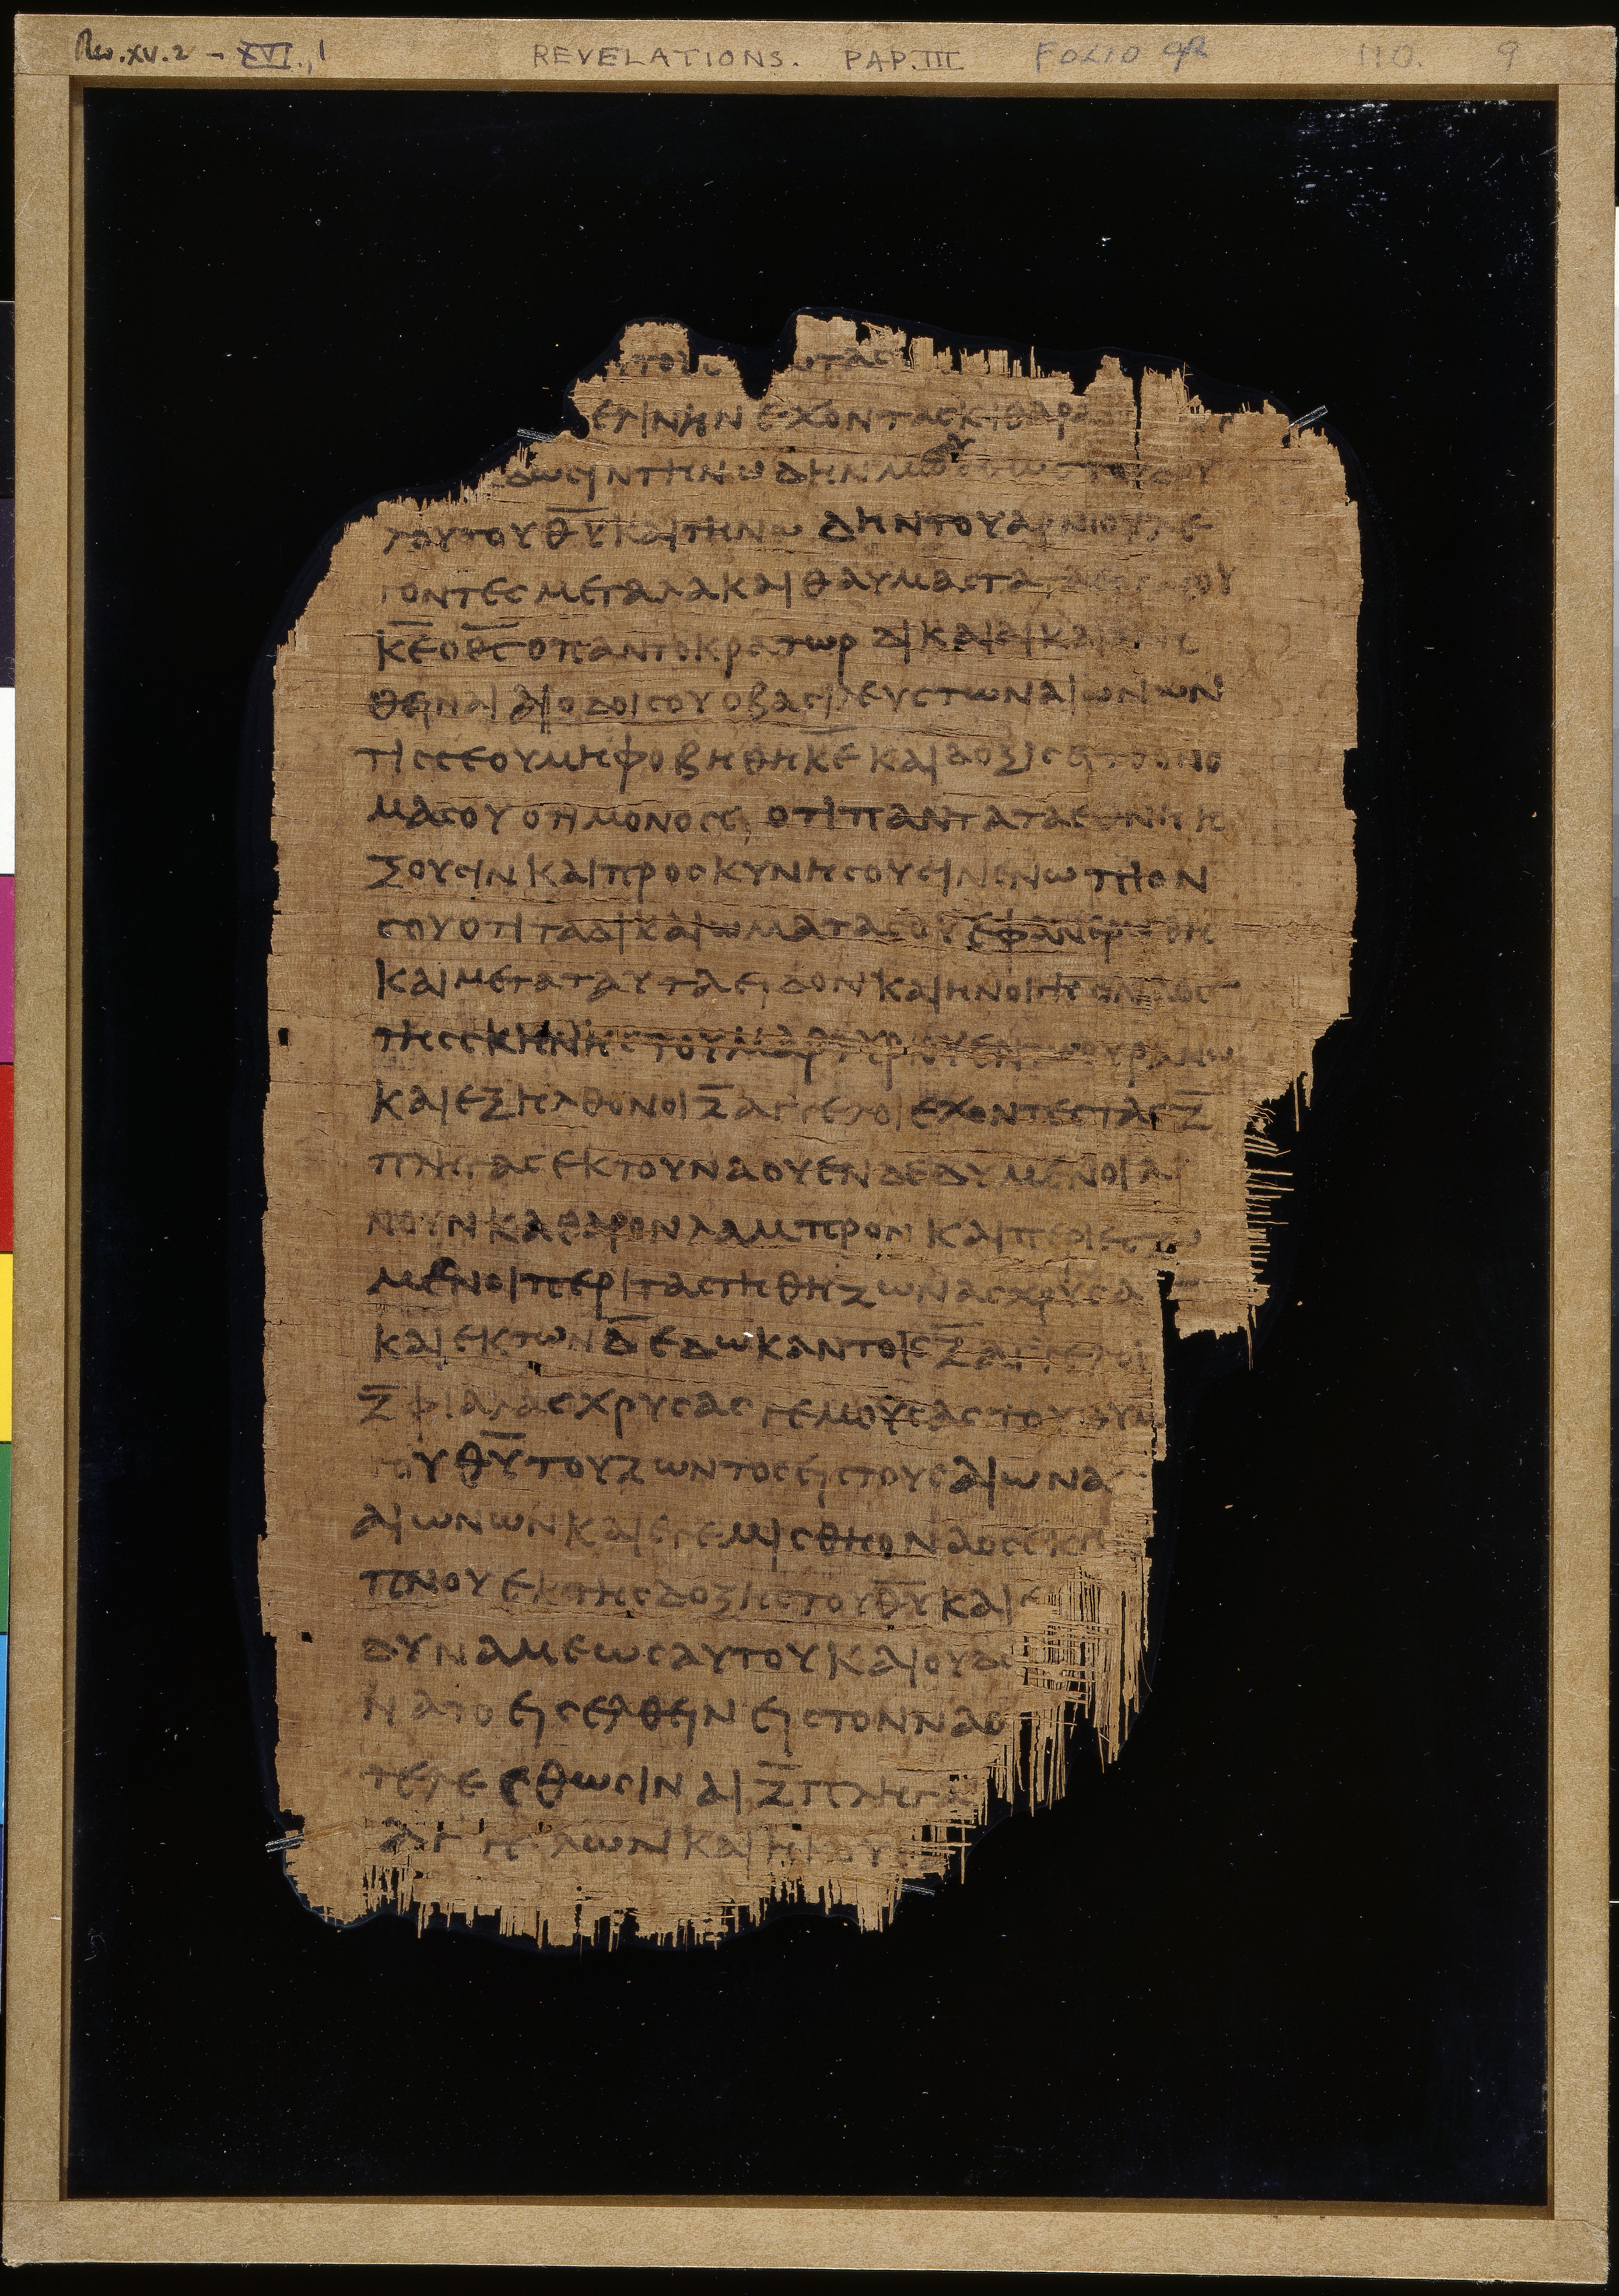 Rev. XV. 2 – XVI., 1 REVELATIONS. PAP. III FOLIO 9R 110. 9
τους ωτας
εγινην εχοντας κιθαρα
δωσιν την ωδην μω
του του θ̅υ̅ και την ωδην του αρνιου λε
γοντες μεγαλα και θαυμαστα τα εργα σου
κ̅ε̅ ο θ̅ς̅ ο παντοκρατωρ δικαιαι και
θειναι αι οδοι σου ο βασιλευς των αιωνων
τις σε ου μη φοβηθη κ̅ε̅ και δοξισει το ονο
μα σου οτι μονος ει οτι παντα τα εθνη η
ξουσιν και προσκυνησουσιν ενωπιον
σου οτι τα δικαιωματα σου εφανερωθη
και μετα ταυτα ειδον και ηνοιγη ο ναος
της σκηνης του μαρτυριου εν τω ουρανω
και εξηλθον οι ζ̅ αγγελοι εχοντες τας ζ̅
πληγας εκ του ναου ενδεδυμενοι λι
νουν καθαρον λαμπρον και περιεζω
μενοι περι τα στηθη ζωνας χρυσας
και εκ των δ̅ εδωκαν τοις ζ̅ αγγελοι
ζ̅ φιαλας χρυσας γεμουσας του θυμ
ου θ̅υ̅ του ζωντος εις τους αιωνας
αιωνων και εγεμισθη ο ναος εκ
πνου εκ της δοξης του θ̅υ̅ και ε
δυναμεως αυτου και ουδε
νατο εισελθειν εις τον ναο
τελεσθωσιν αι ζ̅ πληγα
αγγελων και ηκουσα